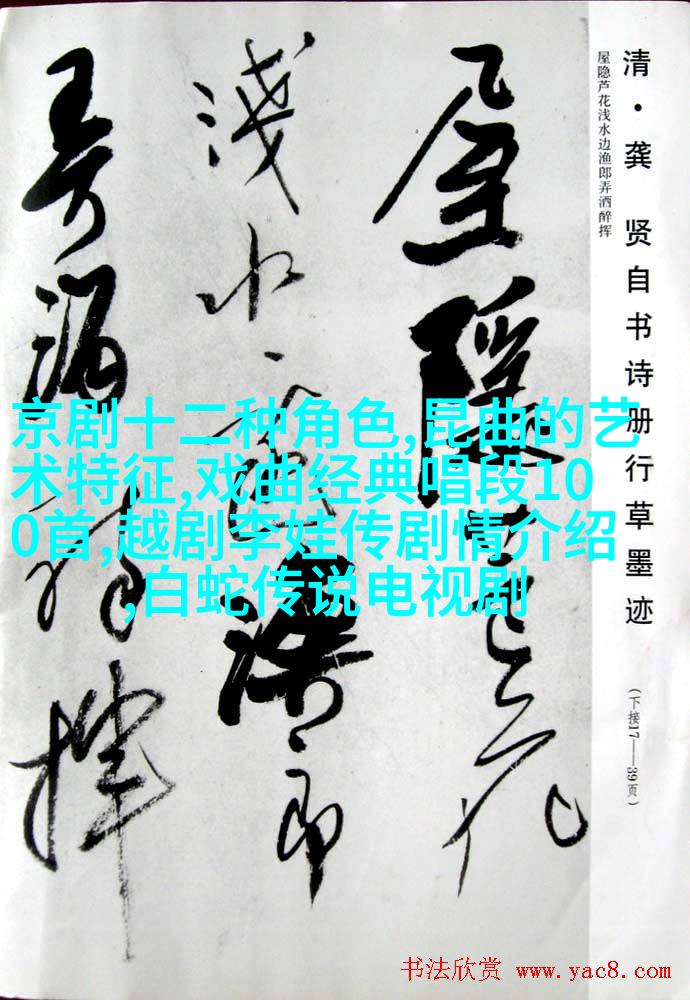 清·龚 贤自书诗册行草墨迹
屋隐芦花浅水边渔郎弄酒醉挥
(下接17——39页)
屋隐芦花
浅水边渔郎
弄酒醉挥
京剧十二种角色,昆曲的艺
术特征,戏曲经典唱段10
0首,越剧李娃传剧情介绍
,白蛇传说电视剧
书法欣赏 www.yac8.com